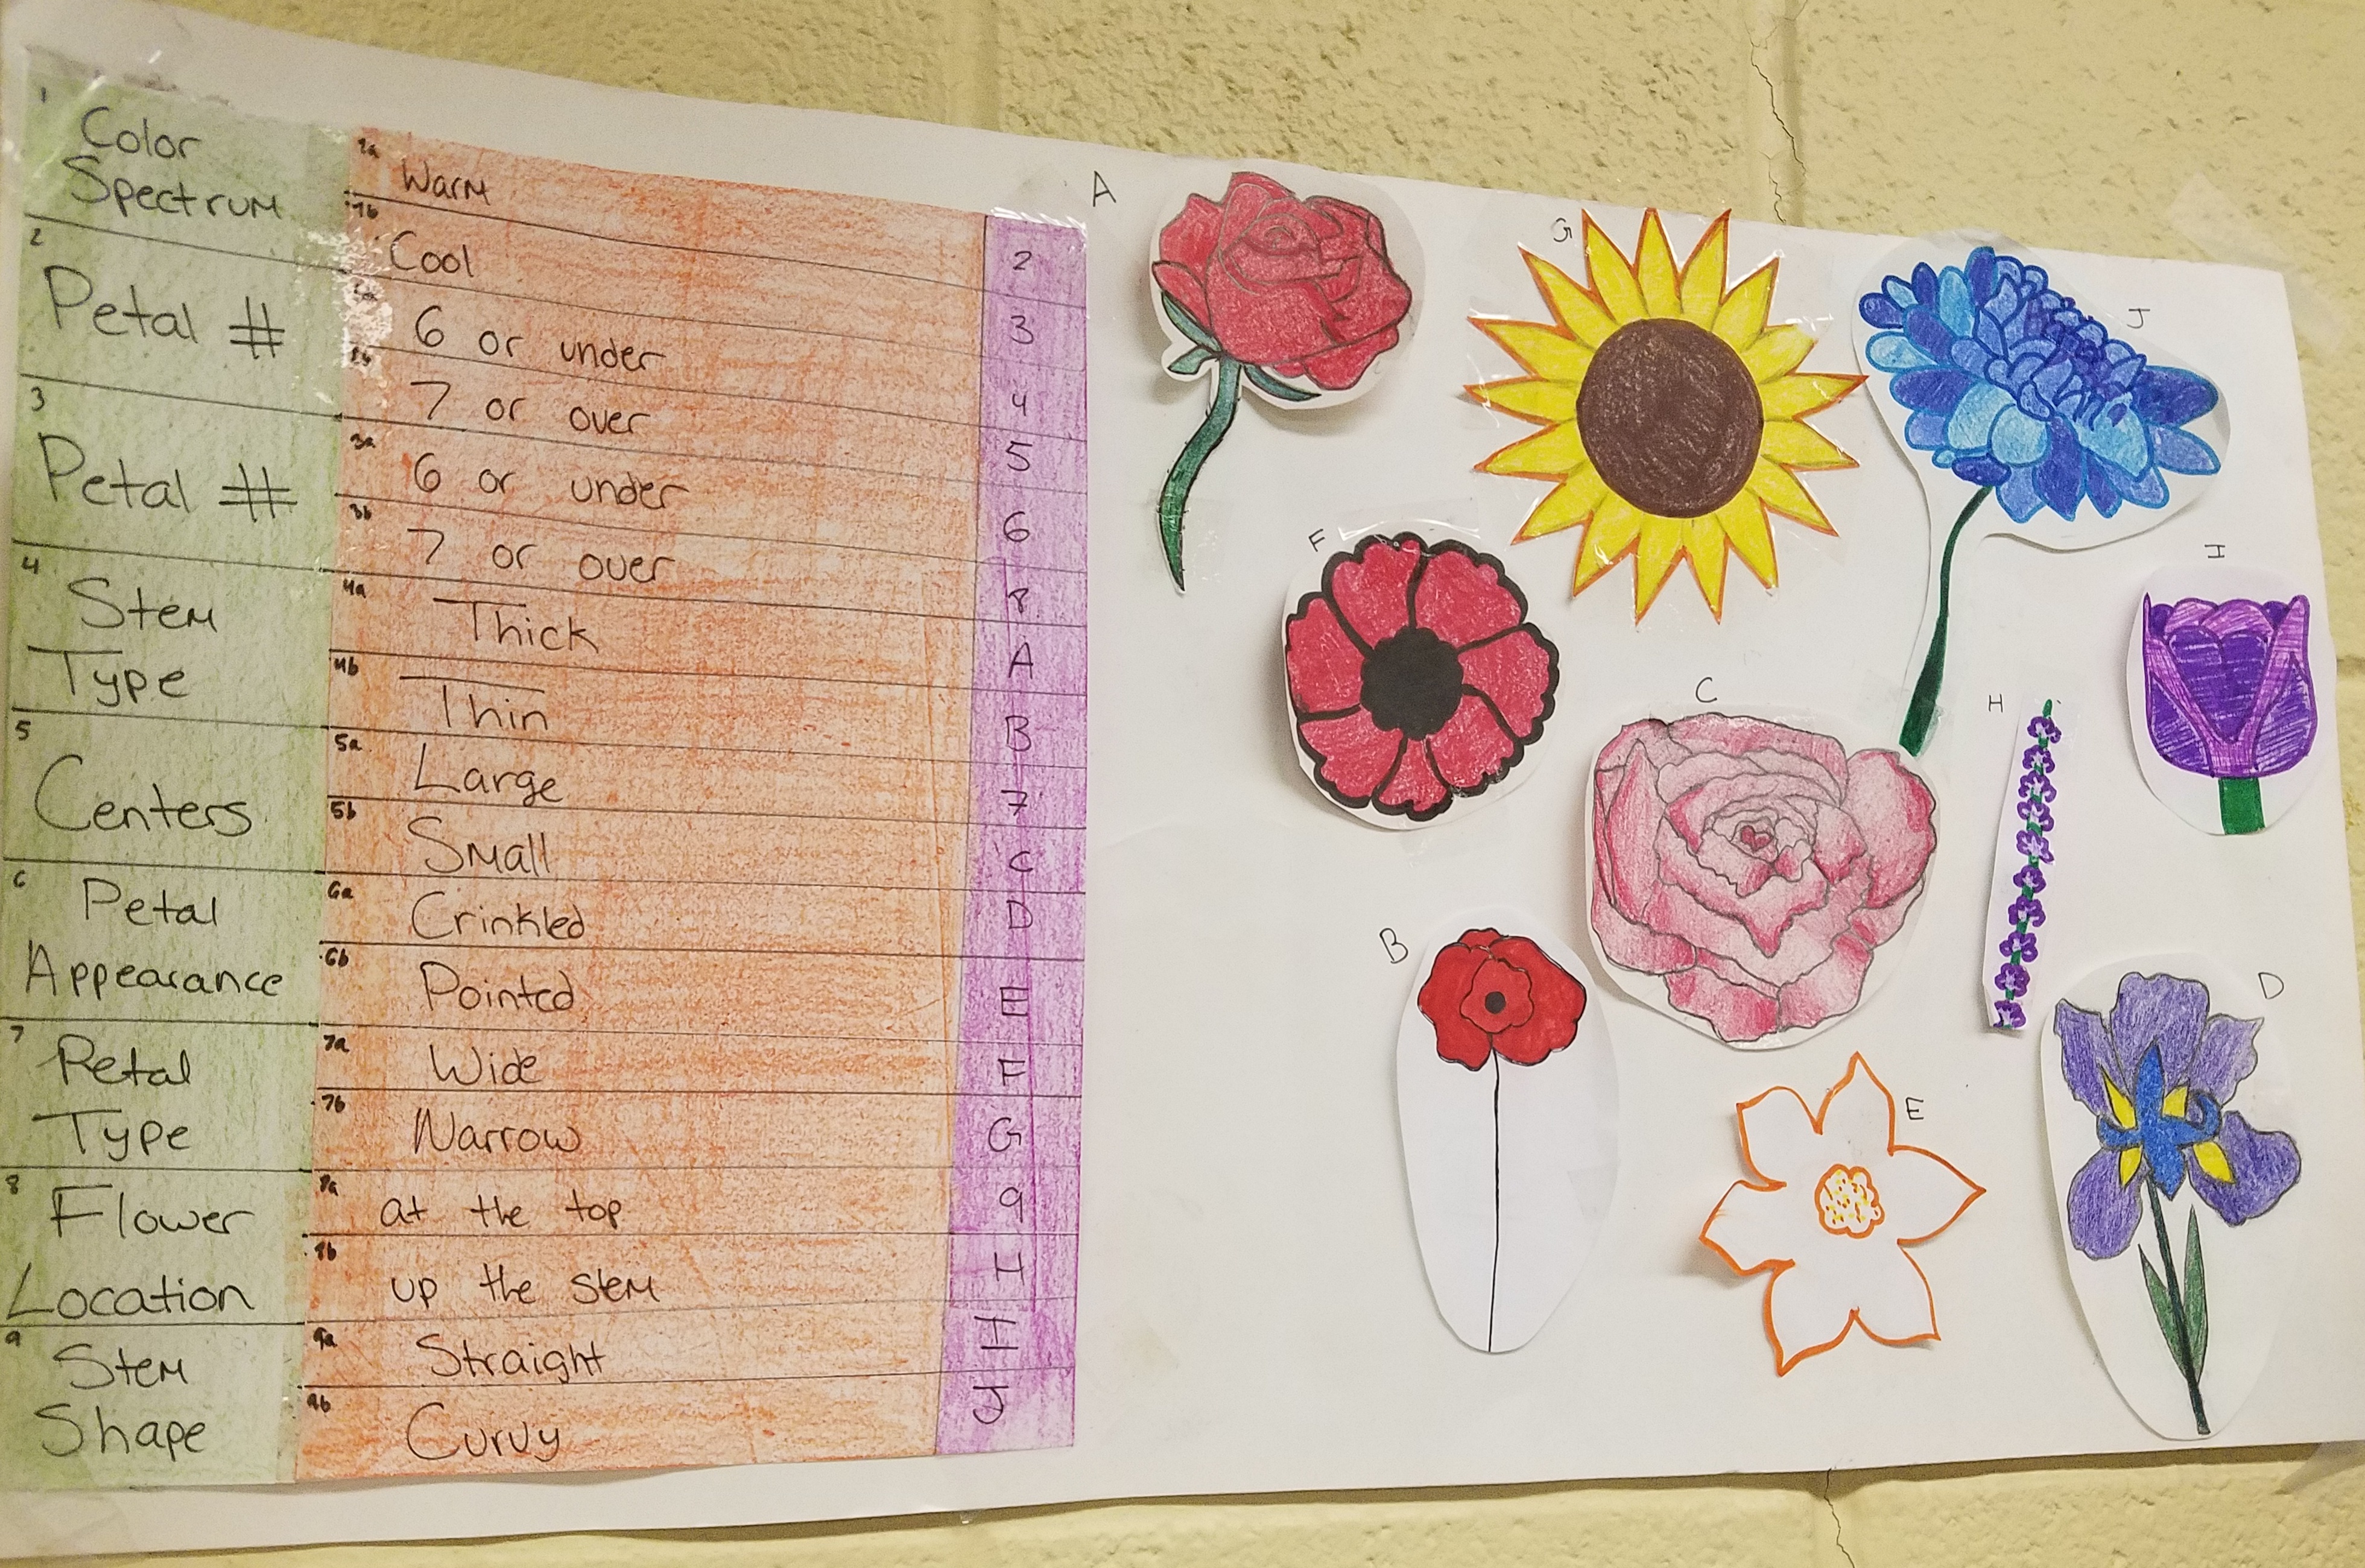 1
Color
Spectrum
2
Petal #
3
Petal #
4
Stem
Type
5
Centers
6
Petal
Appearance
7
Petal
Type
8
Flower
Location
9
Stem
Shape
1a
Warm
1b
Cool
6 or under
7 or over
3a
6 or under
3b
7 or over
4a
Thick
4b
Thin
5a
Large
5b
Small
6a
Crinkled
6b
Pointed
7a
Wide
7b
Narrow
8a
at the top
8b
up the stem
9a
Straight
9b
Curvy
2
3
4
5
6
8
A
B
7
C
D
E
F
G
9
H
I
J
A
G
J
F
I
C
H
B
D
E